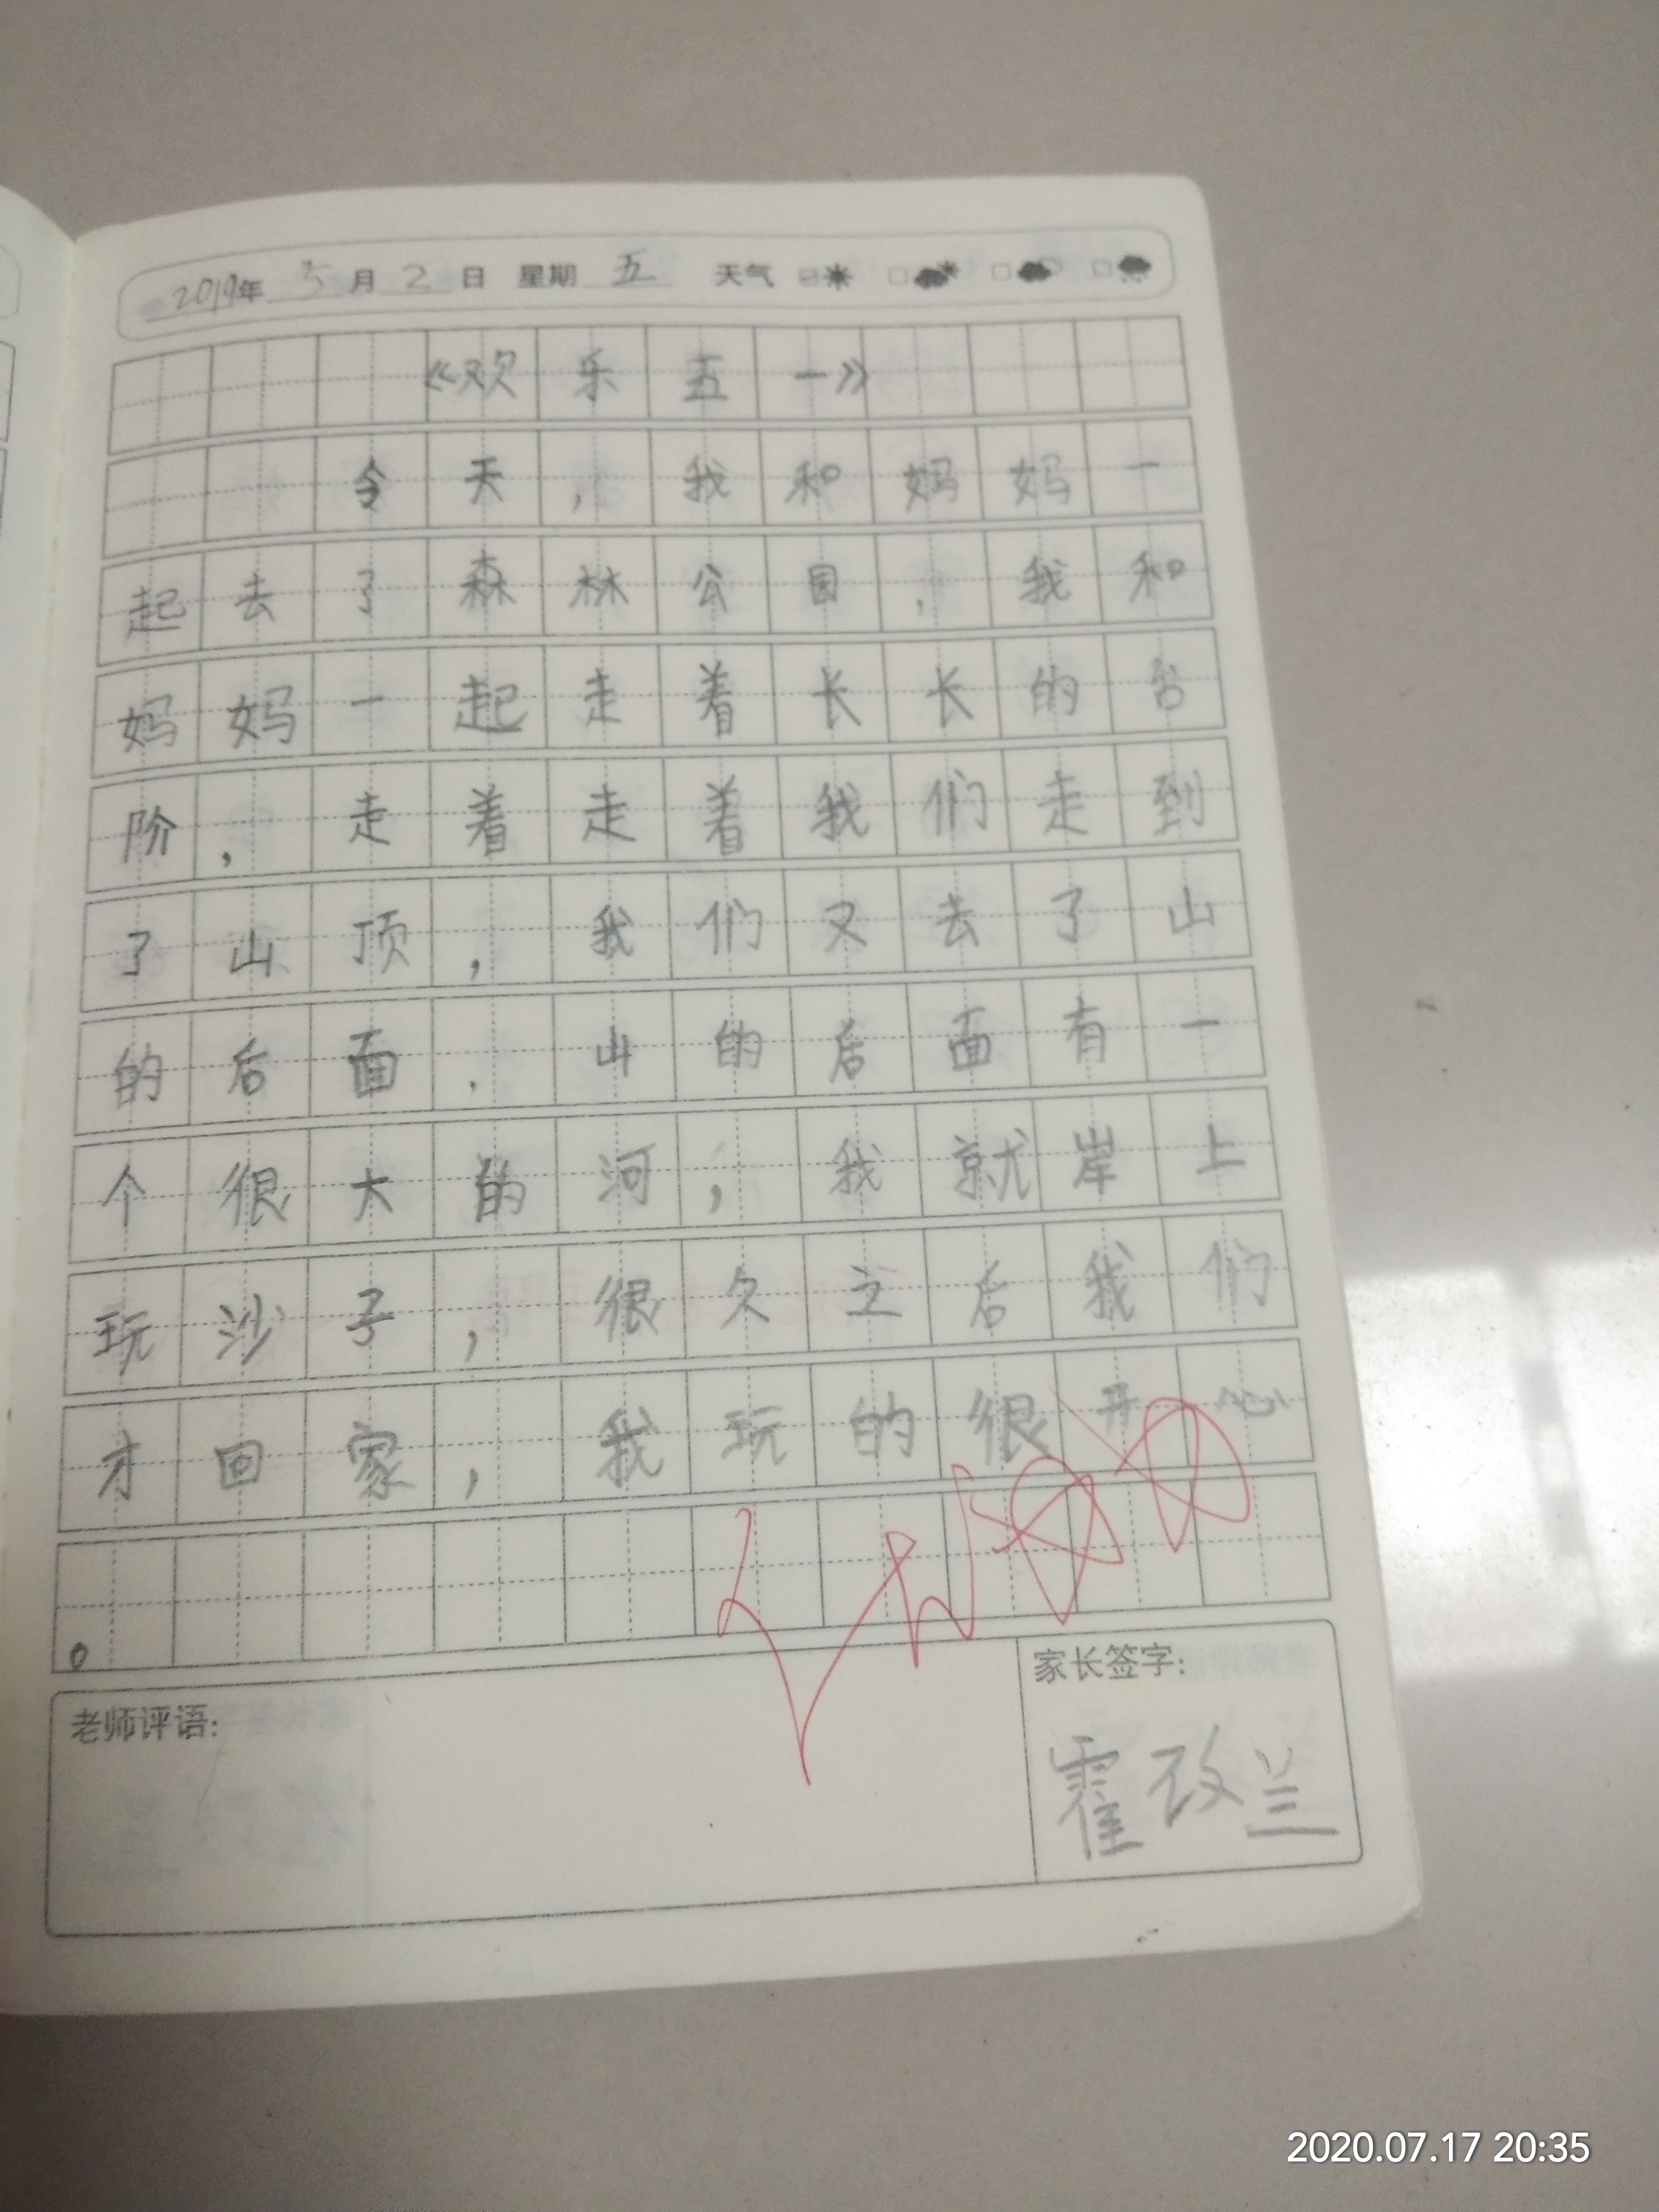 2019年 5 月 2 日 星期 五 天气
《欢乐五一》
今天，我和妈妈一
起去了森林公园，我和
妈妈一起走着长长的台
阶，走着走着我们走到
了山顶，我们又去了山
的后面，山的后面有一
个很大的河，我就岸上
玩沙子，很久之后我们
才回家，我玩的很开心
。
老师评语:
家长签字:
霍改兰
2020.07.17 20:35